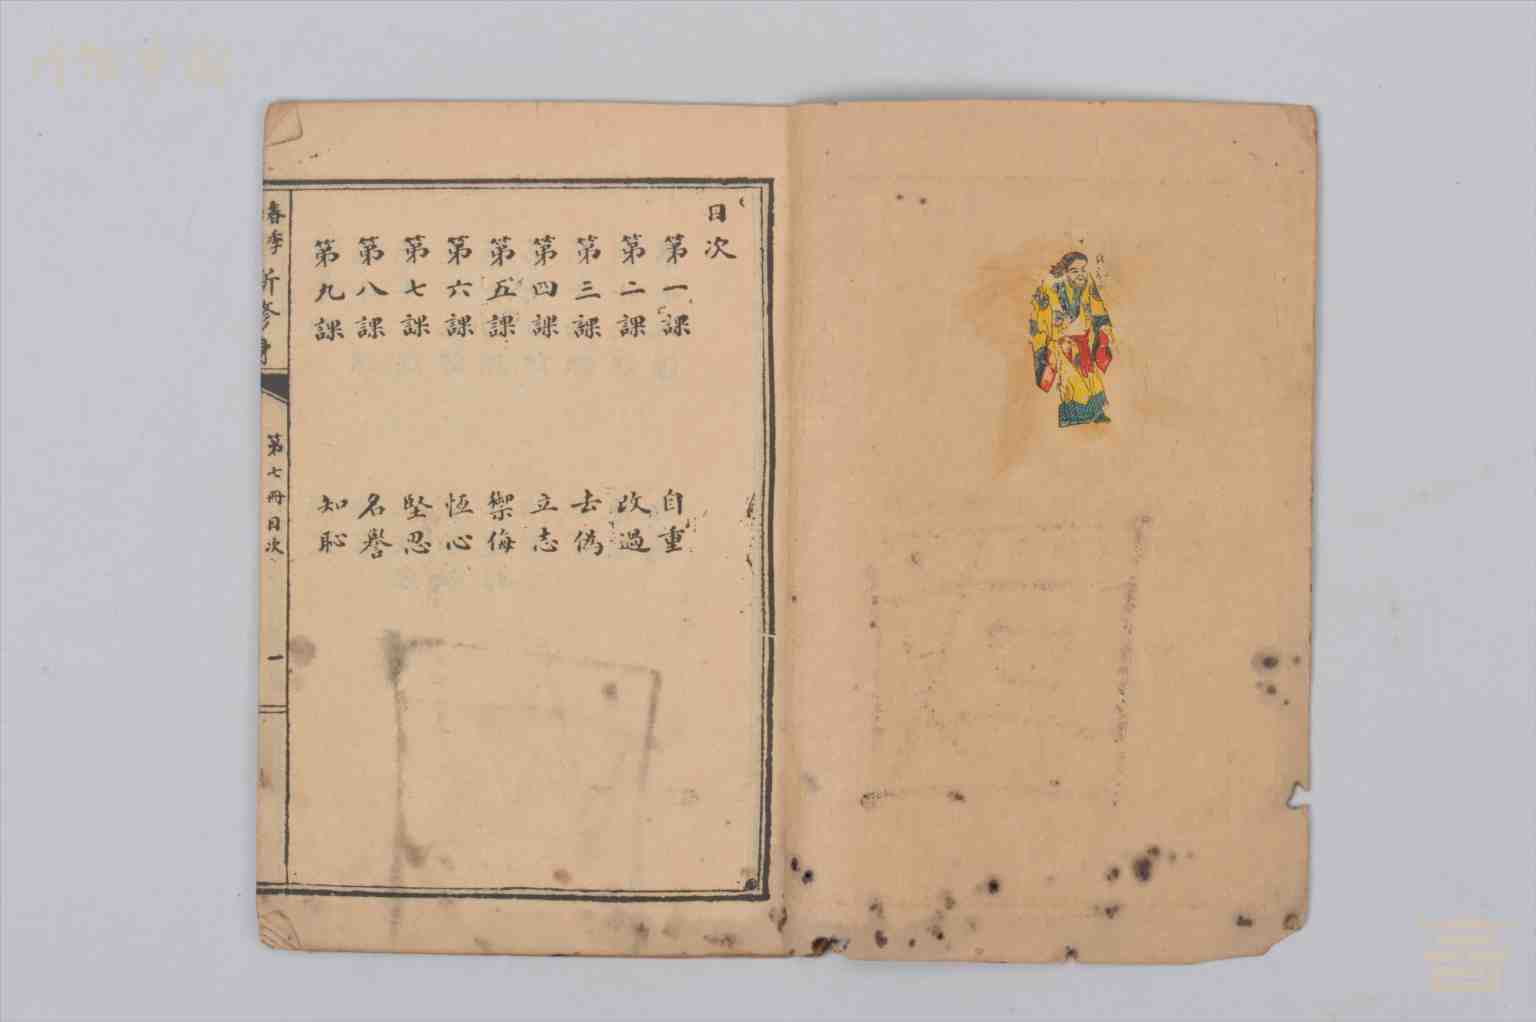 目次
第一課 自重
第二課 改過
第三課 去偽
第四課 立志
第五課 禦侮
第六課 恆心
第七課 堅忍
第八課 名譽
第九課 知恥
春季 新修身
第七冊目次
一